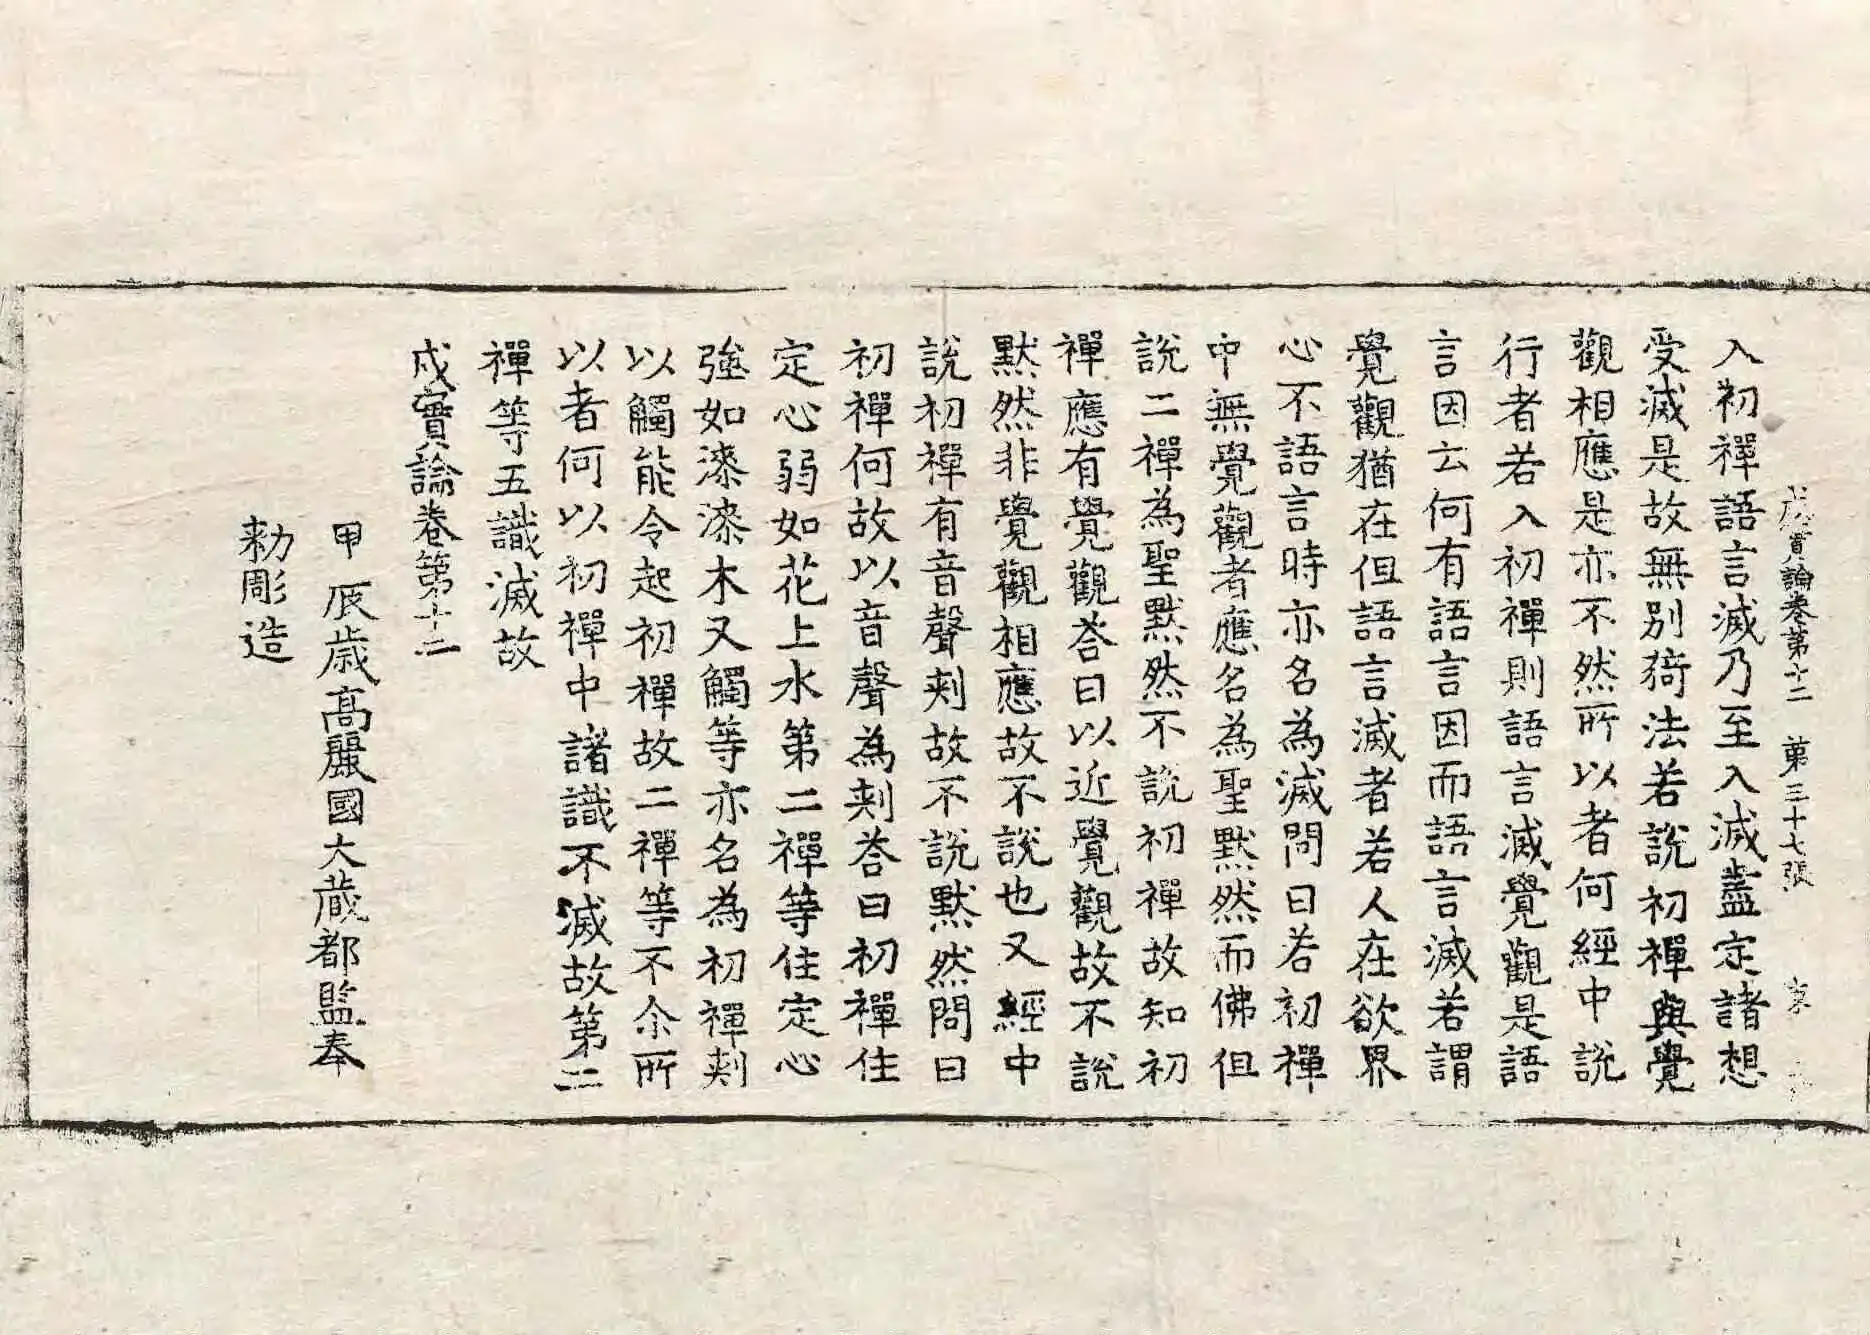 成實論卷第十二 第三十七張
入初禪語言滅乃至入滅盡定諸想
受滅是故無別猗法若說初禪與覺
觀相應是亦不然所以者何經中說
行者若入初禪則語言滅覺觀是語
言因云何有語言因而語言滅若謂
覺觀猶在但語言滅者若人在欲界
心不語言時亦名為滅問曰若初禪
中無覺觀者應名為聖默然而佛但
說二禪為聖默然不說初禪故知初
禪應有覺觀荅曰以近覺觀故不說
默然非覺觀相應故不說也又經中
說初禪有音聲刺故不說默然問曰
初禪何故以音聲為刺荅曰初禪住
定心弱如花上水第二禪等住定心
強如漆漆木又觸等亦名為初禪刺
以觸能令起初禪故二禪等不尒所
以者何以初禪中諸識不滅故第二
禪等五識滅故
成實論卷第十二
甲辰歲高麗國大藏都監奉
勑彫造